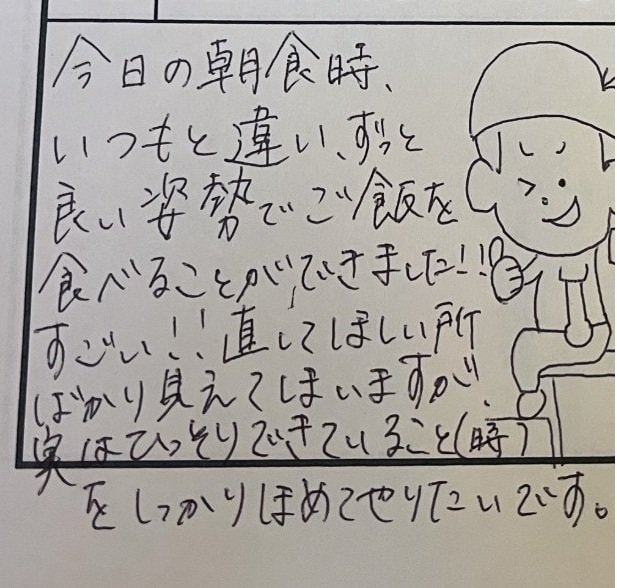 今日の朝食時、
いつもと違い、ずっと
良い姿勢でご飯を
食べることが、できました!!
すごい!!直してほしい所
ばかり見えてしまいますが、
実はひっそりできていること(時)
をしっかりほめてやりたいです。